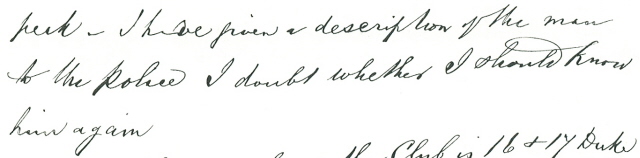 peek - I have given a description of the man
to the police I doubt whether I should know
him again
the Club is 16 & 17 Duke